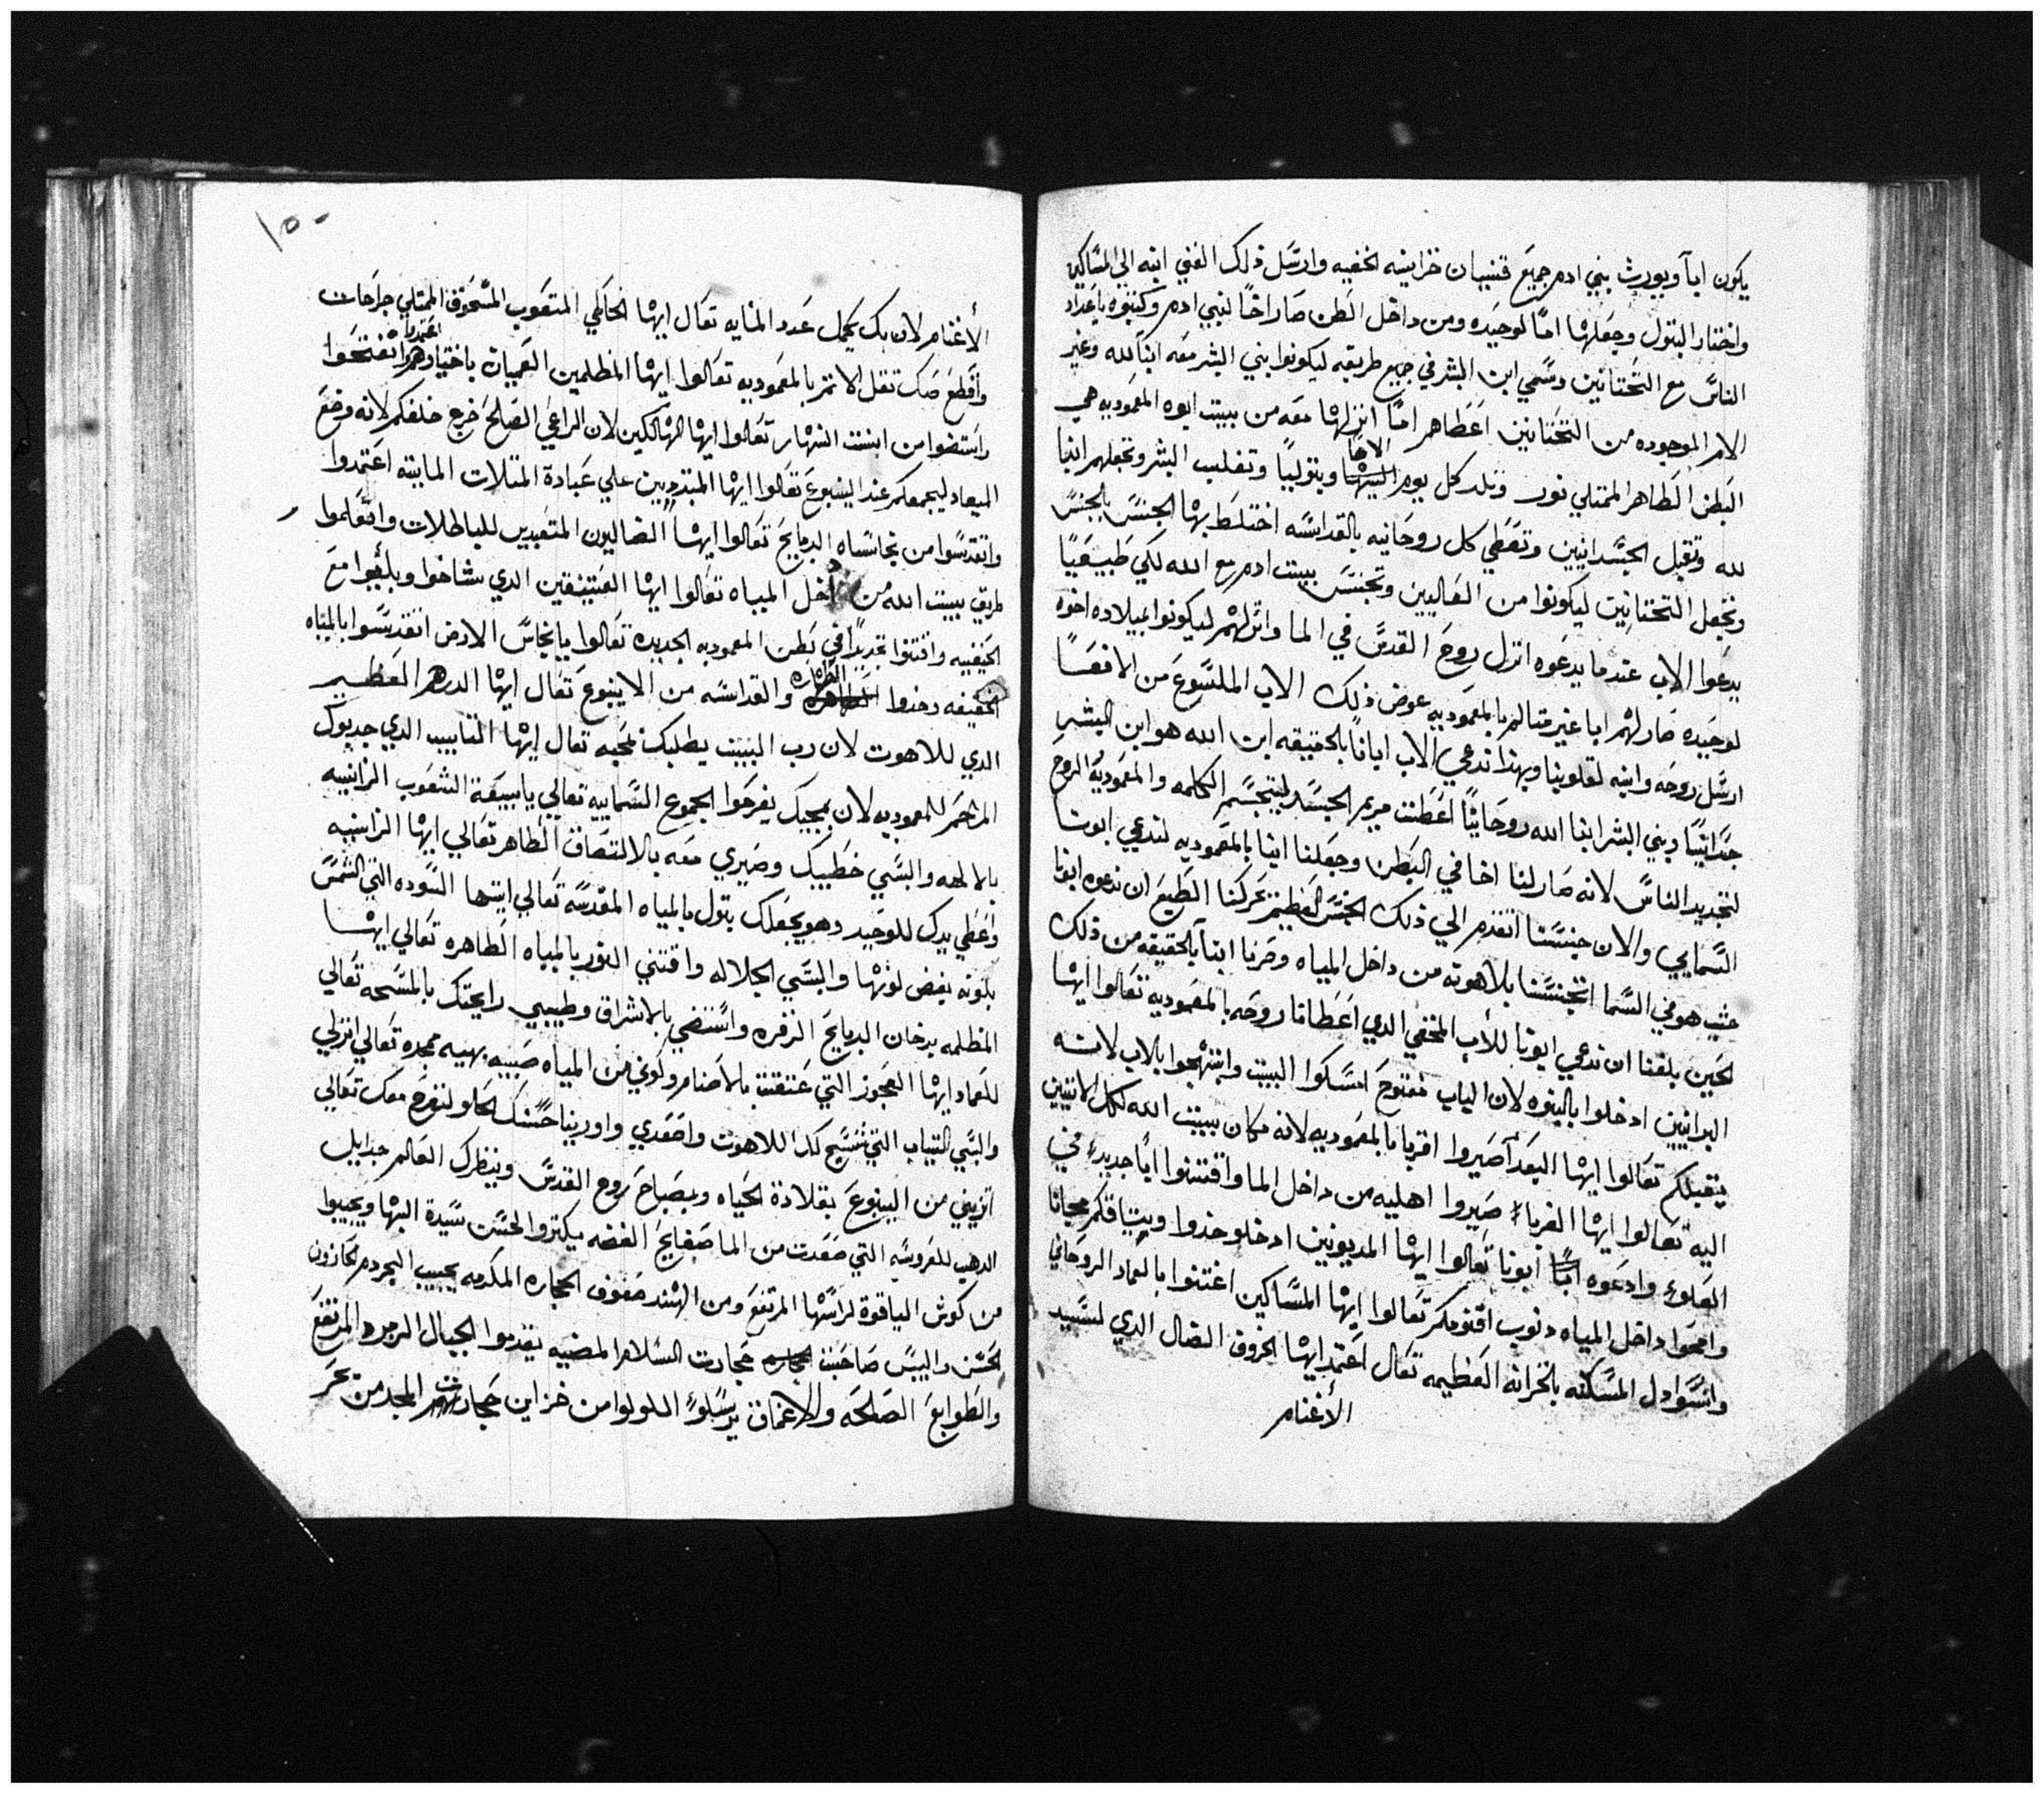 يكون ابآ ويورث بني ادم جميع قنيان خزاينه الخفيه وارسَل ذلك الغني ابنه الي المسَاكين
واختار البتول وجعَلها امًا لوحيَده ومن داخل البَطن صَار اخًا لبني ادم وكتبوه باعَداد
الناسَ مع التحَتانين وسَمي ابن البشر في جميع طريقه ليكونوا بني البشر معَه ابنآ لله وغير
الام الموجوده من التحَتانين اعَطاهم امًا انزلها معَه من بيت ابوه المعَموديه هي
البَطن الطَاهر الممتلي نور وتلد كل يوم الاها وبتوليًا وتقلب البشر وتجعلهم ابنا
لله وتقبل الجسَدانيين وتعَطي كل روحَانيه بالقداسَه اختلطَ بها الجنسَ بالجنسَ
وتجعَل التحتانين ليكونوا من العَاليين وتجنسَ ببيت ادم مع الله لكي طَبيعَيًا
يدعَوا الاب عندما يدعَوه انزل روحَ القدسَ في الما واترلهم ليكونوا لميلاده اخوه
لوحيَده صَار لهم ابا غير متالم بالمعَموديه عوض ذلك الاب الملسَوعَ من الافعَا
ارسَل روحَه وابنه لقلوبنا وبهذا ندعي الاب ابانا بالحقيقه ابن الله هو ابن البشر
جسَدانيًا وبني البشر ابنا الله روحَانيًا اعَطت مريم الجسَد ليتجسَم الكلمه والمعَموديه الروحَ
لتجديد الناسَ لانه صَار لنا اخا في البَطن وجعَلنا ابنا بالمعَموديه لندعي ابونا
السَمايي والان جنسَنا اتقدم الي ذلك الجنسَ العَظيم تحركنا الطَبعَ ان ندعوه ابونا
حيث هو في السَما اتجنسَنا بلاهوته من داخل المياه وصَرنا ابنآ بالحقيقه من ذلك
الحين بلغنا ان ندعي ابونا للأب المخفي الدي اعَطَانا روحَه بالمعَموديه تعَالوا ايها
البرانيين ادخلوا بالبنوه لان الباب مفتوحَ امسَكوا البيت وابتهجَوا بالاب لانه
يتقبلكم تعَالوا ايها البعَدآ صَيروا اقربا بالمعَموديه لانه مكان ببيت الله لكل الاتيين
اليه تعَالوا ايها الغرباء صَيروا اهليه من داخل الما واقتنوا ابًا جديدء في
العَلوء وادعَوه ابًا ابونا تعَالوا ايها المديونين ادخلو خدوا وبيتاقكم مجانا
وامحَوا داخل المياه دنوب اقنومكم تعَالوا ايها المسَاكين اغتنوا بالعَماد الروحَاني
وانسَوا دل المسَكنه بالخزانه العَظيمه تعَال اعَتمد ايها الخروف الضال الدي لسَيد
الأغنام
١٥٠
الأغنام لان بك يكمل عَدد المايه تعَال ايها الخاطي المتعَوب المسَحَوق الممتلي جراحَات
واقطَع صَك تقل الاتم بالمعَموديه تعَالوا ايها المظلمين العَميان باختيارهم اعَتمدوا تفتحَوا
واستضوا من ابنت النهار تعَالوا ايها الهالكين لان الراعَي الصَالحَ خرج خلفكم لانه وضعَ
الميعاد ليجمعكم عند الينبوعَ تعَالوا ايها المبتدين علي عَبادة المتلات المايته اعَتمدوا
واتقدسَوا من نجاسَاه الدبايحَ تعَالوا ايها الضاليون المتعَبدين للباطلات واتعَلموا
طريق ببيت الله من داخل المياه تعَالوا ايها العَتيقين الدي شاخوا وبليوا معَ
الخيفيه واقتنوا تجديدًا في بَطن المعموديه الجديده تعَالوا يا نجاسَ الارض اتقدسَوا بالمياه
الخفيفه وخدوا الطَهاره والقداسَه من الاينبوعَ تعَال ايها الدرهم العَظيم
الدي للاهوت لان رب البيت يطلبك بمحَبه تعال ايها التايب الدي جدبوك
المراحَم للمعَموديه لان بمجيك يفرحَوا الجموع السَماييه تعَالي يا بيعَة الشعَوب الزانييه
بالالهه والبسَي خطَيبك وصَيري معَه بالالتصَاق الطَاهر تعَالي ايها الزانييه
واعَطَي يدك للوحَيد وهو يجعَلك بتول بالمياه المقدسَه تعَالي ايتها السَوده التي الشمسَ
بلونه بغض لونها والبسَي الجلاله واقتني النور بالمياه الطَاهره تعَالي ايها
المظلمه بدخان الدبايحَ الزفره واسَتضي بالاشراق وطيبي رايحَتك بالمسَحَه تعَالي
للعَماد ايها العَجوز التي عَتقت بالاصَنام وكوني من المياه صَبيه بهيه ممجده تعَالي انزلي
والبسَي التياب التي تنسَج لك اللاهوت واصَعَدي واورينا حسَنك الحَلو لنفرحَ معَك تعَالي
اتزيني من الينبوعَ بقلادة الحَياه وبمصَباح روح القدسَ وينظرك العَالم جدايل
الدهب للعَروسَه التي صَعَدت من الما صَفايحَ الفضه يكتروا لحَسَن سَيدة البها ويجيبوا
من كوش الياقوة لراسَها المرتفعَ ومن الهند صَفوف الحجاره المكرمه يجيب البحر دم كحَازون
الحَسَن والبيسَ صَاحَبت حَجارت السَلام المضيه يقدموا الجبال الزمرد المرتفعَ
والطَوابعَ الصَالحَه والاعَماق يرسَلوء اللولوا من خزاين حَجارت المجد من بحَر